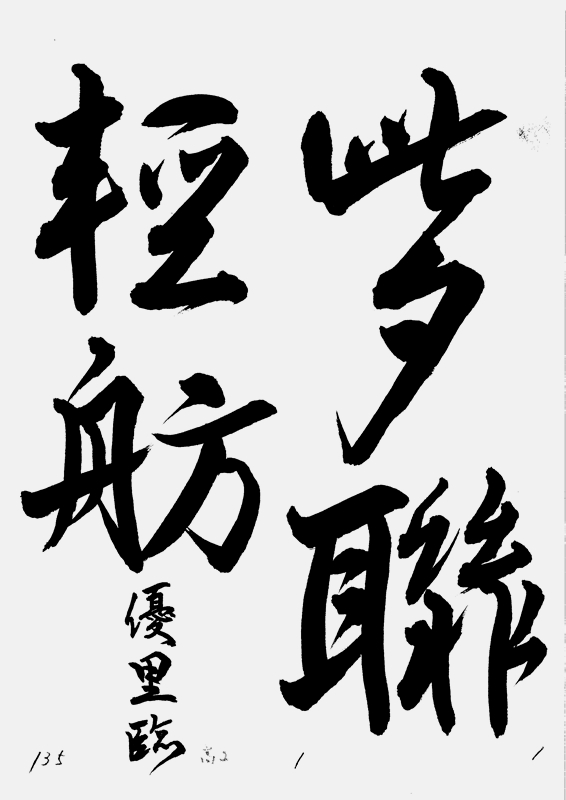 此夕聯
輕舫
優里臨
135
高2
1
1